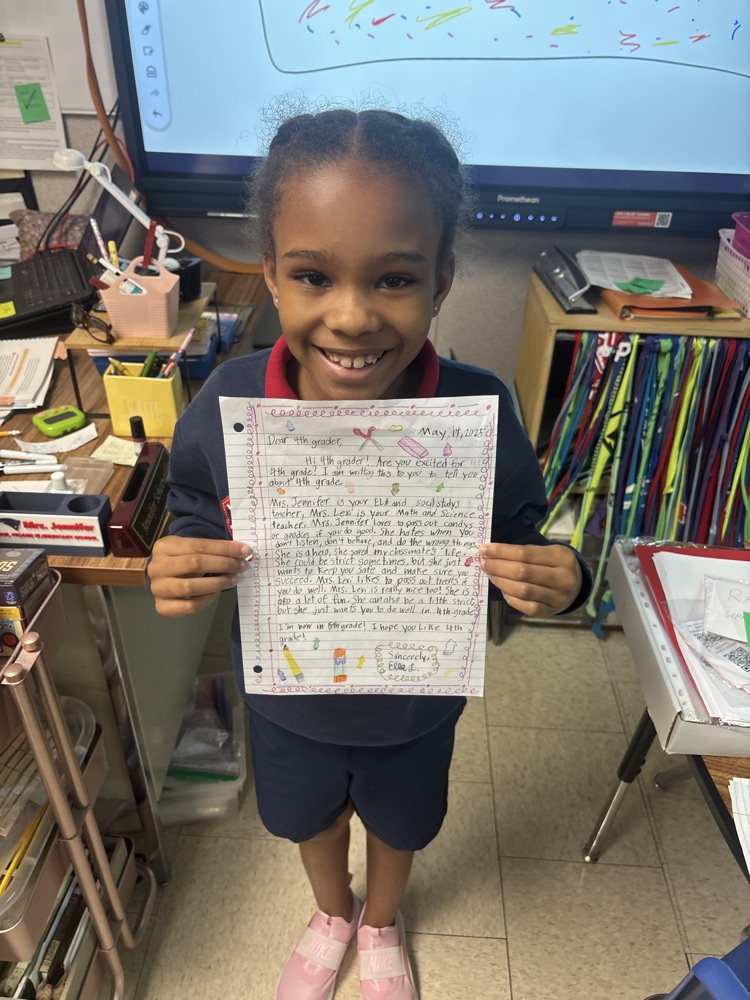 Promethean
Dear 4th grader,
May 14, 2025
Hi 4th grader! Are you excited for
4th grade? I am writing this to you, to tell you
about 4th grade.
Mrs. Jennifer is your ELA and socilstydys
teacher, Mrs. Lexi is your Math and Science
teacher. Mrs. Jennifer loves to pass out candys
or goodies if you do good. She hates when you
don't listen, don't behave, and do the wrong things.
She is a hero, she saved my classmate's life.
She could be strict sometimes, but she just
wants to keep you safe and make sure you
succeed. Mrs. Lexi likes to pass out treats if
you do well. Mrs. Lexi is really nice too! She is
also a lot of fun. She can also be a little strict
but she just wants you to do well in 4th grade
I'm now in 5th grade! I hope you like 4th
grade!
Sincerely,
Ella L.
Mrs. Jennifer
NIKE
NIKE